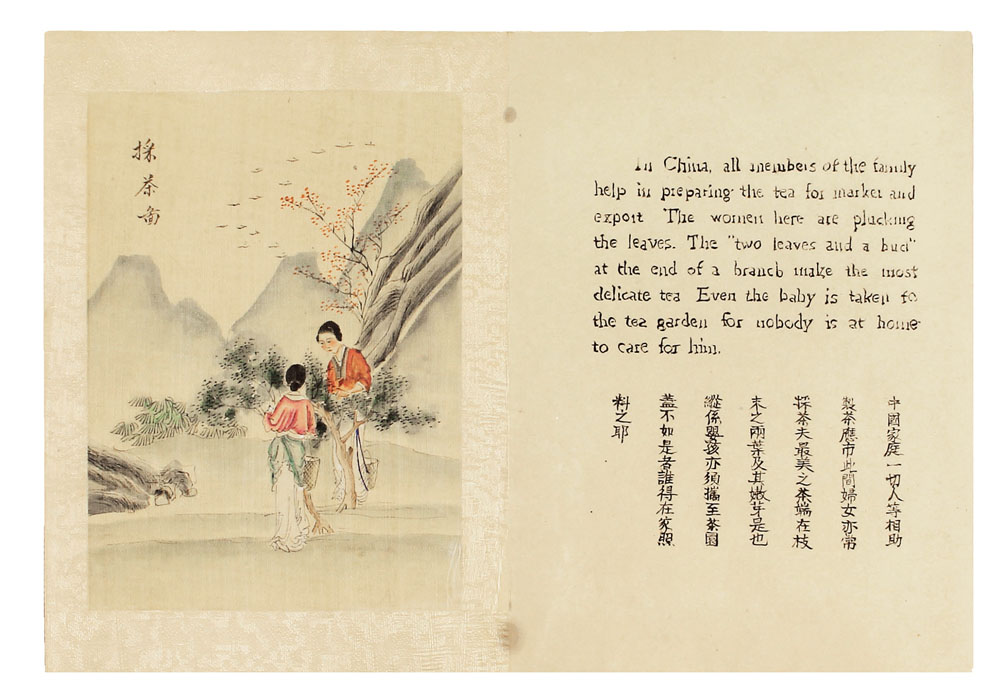 採茶啚
In China, all members of the family
help in preparing the tea for market and
export The women here are plucking
the leaves. The "two leaves and a bud"
at the end of a branch make the most
delicate tea Even the baby is taken to
the tea garden for nobody is at home
to care for him.
中國家庭一切人等相助
製茶應市此間婦女亦常
採茶夫最美之茶端在枝
末之兩葉及其嫩芽是也
縱係嬰孩亦須攜至茶園
蓋不如是者誰得在家照
料之耶